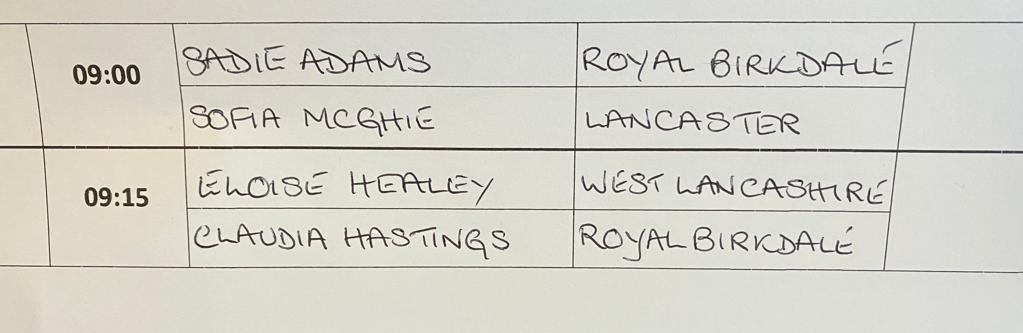 09:00 SADIE ADAMS ROYAL BIRKDALE
SOFIA MCGHIE LANCASTER
09:15 ELOISE HEALEY WEST LANCASHIRE
CLAUDIA HASTINGS ROYAL BIRKDALE